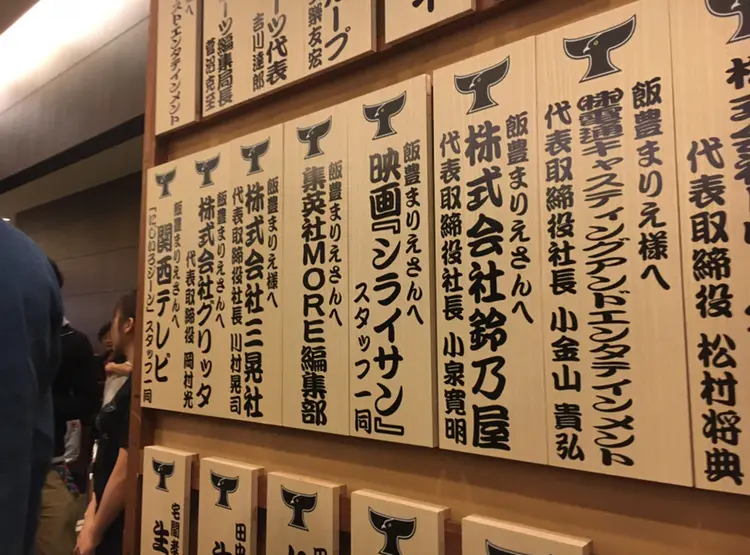 ループ
ーツ代表
吉川達郎
ーツ編集局長
へ
ストエンタテインメント
株式会社
代表取締役 松村将典
飯豊まりえ様へ
㈱電通キャスティングアンドエンタテインメント
代表取締役社長 小金山 貴弘
飯豊まりえさんへ
株式会社鈴乃屋
代表取締役社長 小泉寛明
飯豊まりえさんへ
映画『シライサン』
スタッフ一同
飯豊まりえさんへ
集英社MORE編集部
飯豊まりえ様へ
株式会社三晃社
代表取締役社長 川村晃司
飯豊まりえさんへ
株式会社グリッタ
代表取締役 岡村光
飯豊まりえさんへ
関西テレビ
「にじいろジーン」スタッフ一同
田中
生